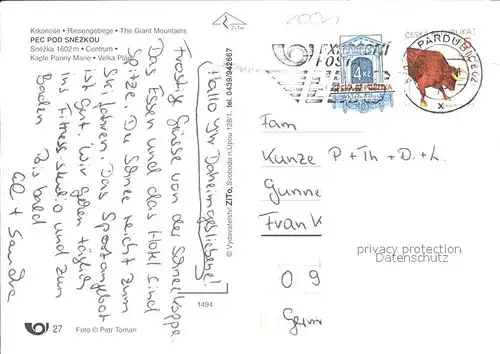 2001
Krkonoše • Riesengebirge • The Giant Mountains
PEC POD SNĚŽKOU
Sněžka 1602 m • Centrum •
Kaple Panny Marie • Velká Pláň
Hallo Ihr Daheimgebliebene!
Frostige Grüsse von der Schneekoppe.
Das Essen und das Hotel sind
Spitze. Der Schnee reicht zum
Ski fahren. Das Sportangebot
ist gut. Wir gehen täglich
ins Fitness-studio und zum
Baden. Bis bald
+ Sandra
© Vydavatelství ZITo, Svoboda n. Úpou 128/1. tel. 0439/942667
1494
27
Foto © Petr Toman
4 Kč
ČESKÁ REPUBLIKA
ČESKÁ REPUBLIKA
PARDUBICE
Fam
Kunze P. + Th + D. + L.
Gunne
Frank
09
Germ
privacy protection
Datenschutz